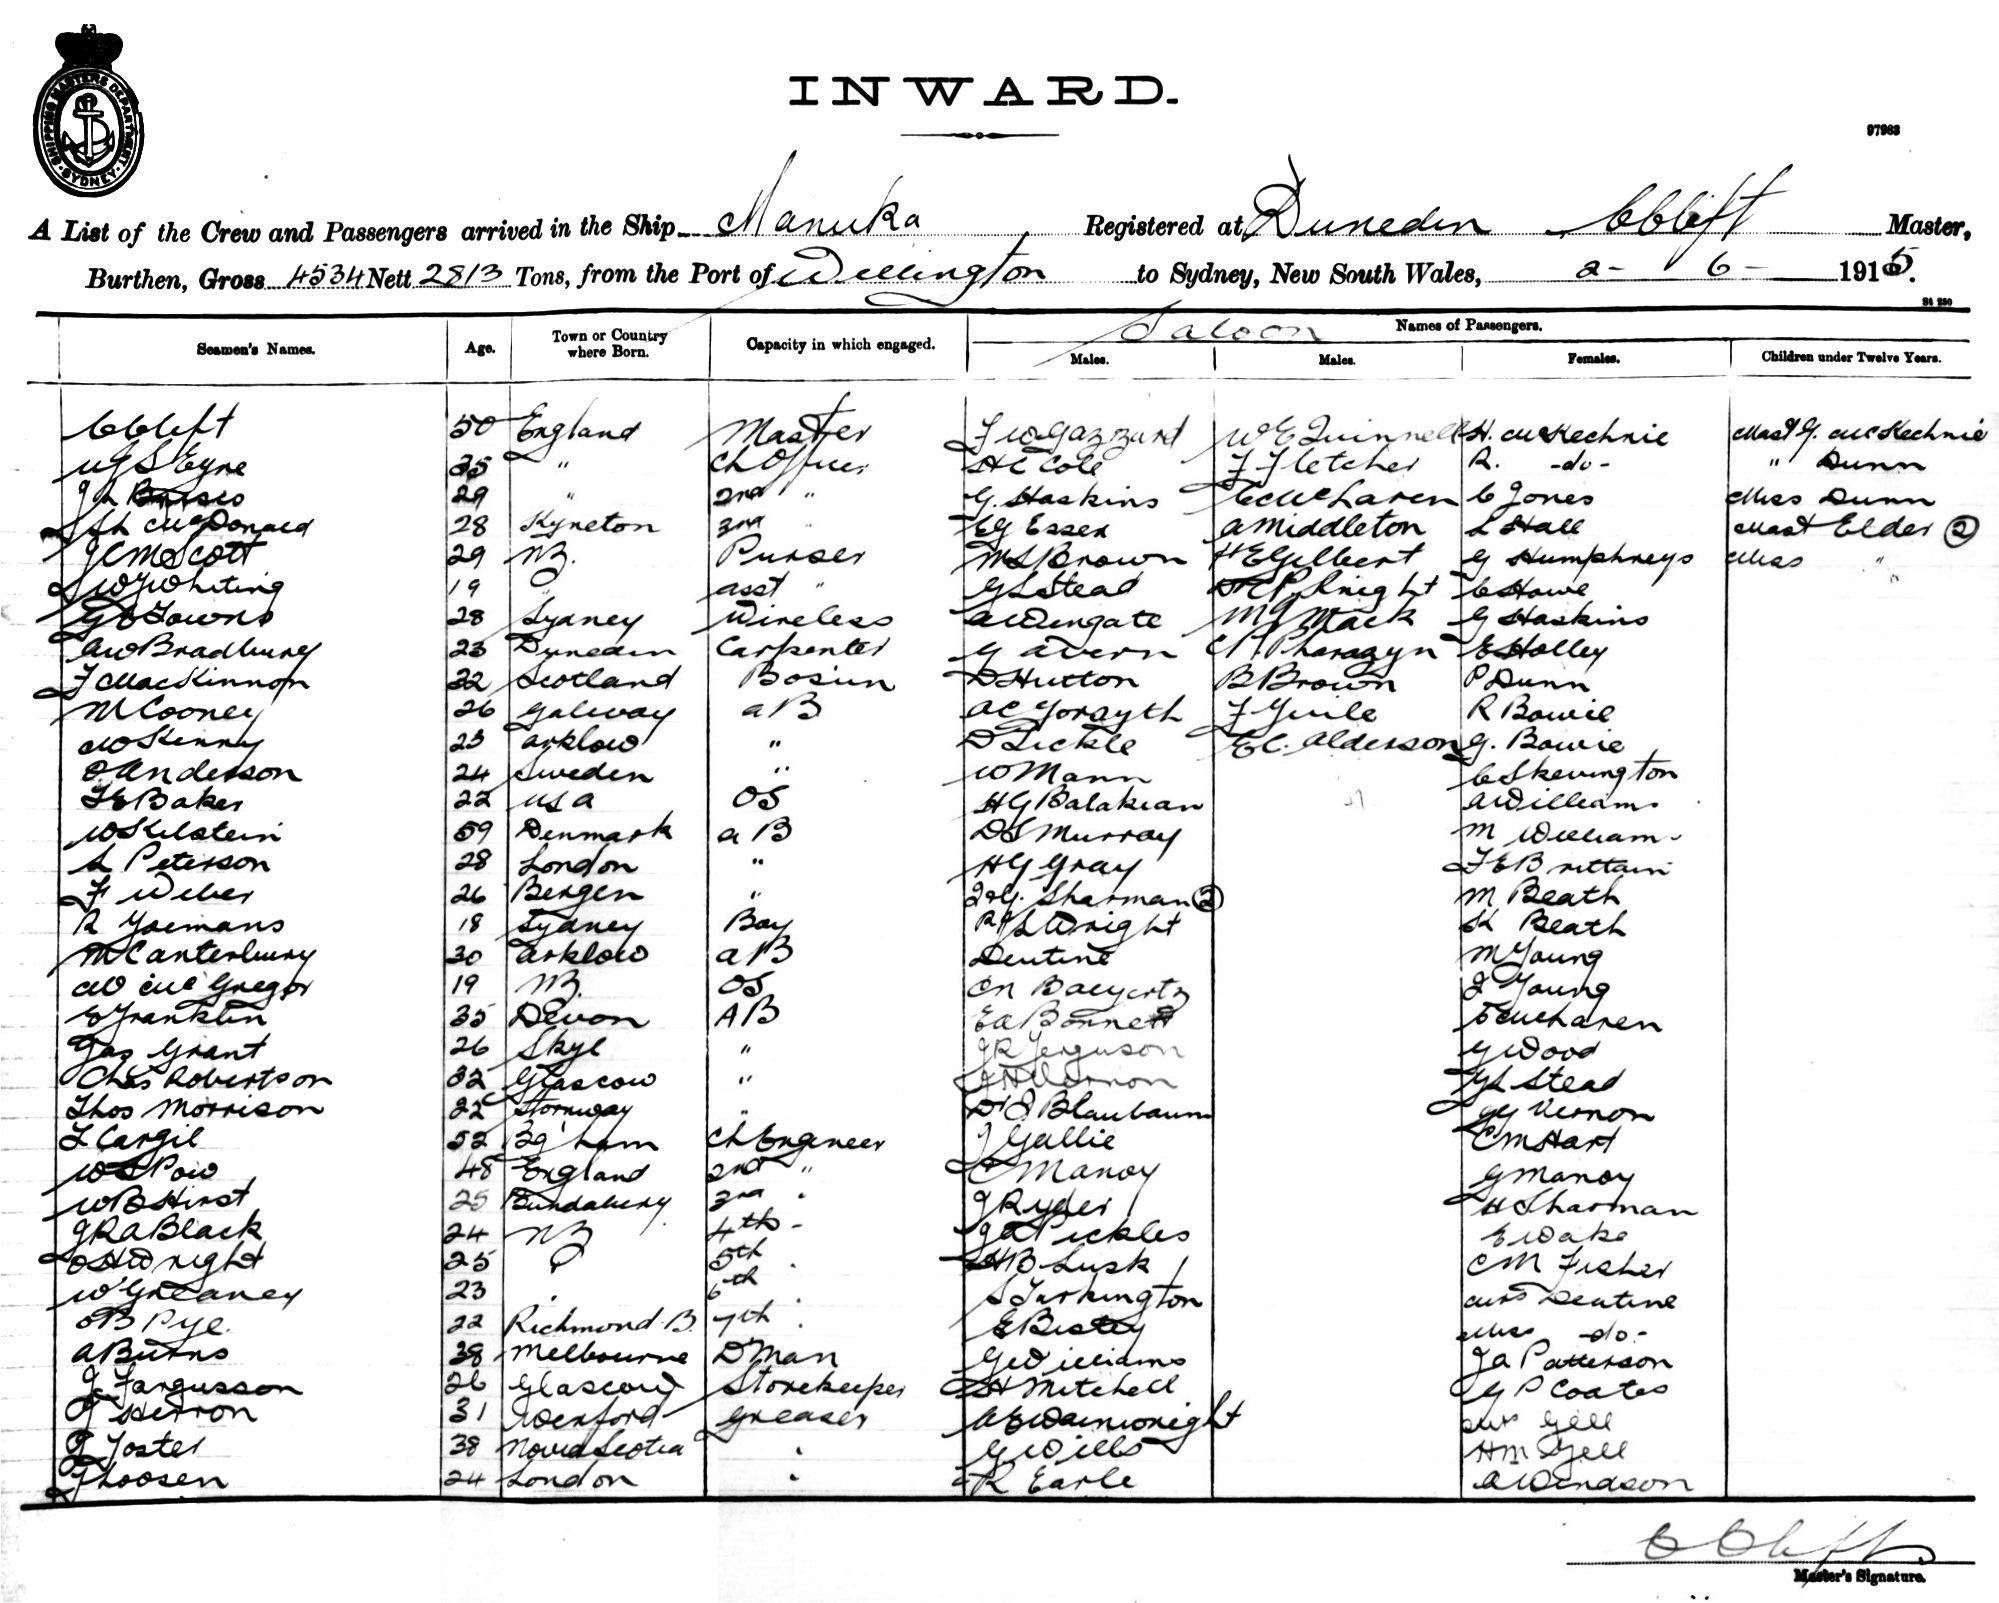 SHIPPING MASTERS DEPARTMENT SYDNEY
INWARD.
97963
A List of the Crew and Passengers arrived in the Ship Manuka Registered at Dunedin C Clift Master,
Burthen, Gross 4534 Nett 2813 Tons, from the Port of Wellington to Sydney, New South Wales, 2 - 6 - 1915.
St 230
Seamen's Names. Age. Town or Country where Born. Capacity in which engaged. Saloon Names of Passengers.
Males. Males. Females. Children under Twelve Years.
C Clift 50 England Master F W Gazzard W E Quinnell H. McKechnie Mast G. McKechnie
Eyre 35 " Ch Officer H C Cole F Fletcher R. -do- " Dunn
29 " 2nd " G. Haskins C McLaren C Jones Miss Dunn
McDonald 28 Kyneton 3rd " E G Essex A Middleton L Hall Mast Elder (2)
J C M Scott 29 NZ. Purser M S Brown H E Gilbert G Humphreys Miss "
W J Whiting 19 " asst " G L Stead Knight C Howe
G C Towns 28 Sydney Wireless A Wingate Mack G Haskins
A W Bradbury 23 Dunedin Carpenter G Avern Pharazyn E Holley
F MacKinnon 32 Scotland Bosun D Hutton B Brown P Dunn
M Cooney 26 Galway a B A C Forsyth F Guile R Bowie
W Kenny 23 Arklow " D Tickle E C. Alderson G. Bowie
O Anderson 24 Sweden " W Mann C Skevington
F E Baker 22 USA OS H G Balakian A Williams
W Kilstein 59 Denmark a B D S Murray M William
L Peterson 28 London " H G Gray F E Brittain
F Weber 26 Bergen " Sharman (2) M Beath
R Yoemans 18 Sydney Boy Wright K Beath
M Canterbury 30 Arklow a B Dentine M Young
W McGregor 19 NZ. OS Baeyertz J Young
E Franklin 35 Devon AB E A Bonnett E McLaren
Jas Grant 26 Skye " J R Ferguson G Wood
Chas Robertson 32 Glascow " Vernon G L Stead
Thos Morrison 22 Stornway " Dr J Blaubaum G Vernon
L Cargil 52 Bg'ham Ch Engineer J Gallie C M Hart
W S Pow 48 England 2nd " C Manoy G Manoy
W B Hirst 25 Bundaburg 3rd " J Ryder H Sharman
J R A Black 24 NZ 4th - J A Pickles E Wake
O H Wright 25 " 5th " H B Lusk C M Fisher
W Greaney 23 " 6th " S Turkington Mrs Dentine
B Pye. 22 Richmond. B. 7th " E Bisley Miss -do-
A Burns 38 Melbourne D'Man G Williams J A Patterson
J Fargusson 26 Glascow Storekeeper H Mitchell G P Coates
J Herron 31 Wexford Greaser A E Wainwright Mrs Gell
J Foster 38 Nova Scotia " G Wills H M Gell
J Loosen 24 London " R Earle A Windson
C Clift
Master's Signature.